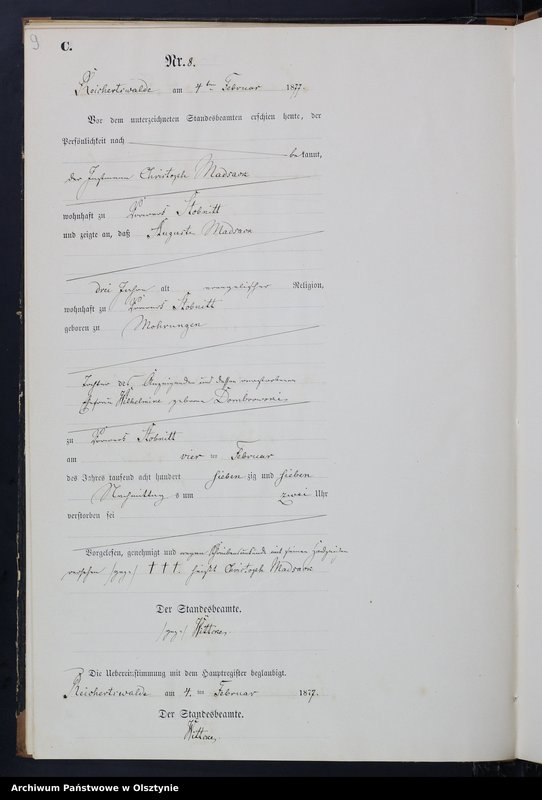 9
C.
Nr. 8.
Reichertswalde am 4ten Februar 1877.
Vor dem unterzeichneten Standesbeamten erschien heute, der
Persönlichkeit nach
bekannt,
der Instmann Christoph
wohnhaft zu Vorwerk Stobnitt
und zeigte an, daß Auguste
drei Jahre alt evangelischer Religion,
wohnhaft zu Vorwerk Stobnitt
geboren zu Mohrungen
Tochter des Anzeigenden und dessen verstorbenen
Ehefrau Wilhelmine geborne
zu Vorwerk Stobnitt
am vier ten Februar
des Jahres tausend acht hundert sieben zig und sieben
Nachmittag s um zwei Uhr
verstorben sei
Vorgelesen, genehmigt und wegen Schreibensunkunde mit seinen Handzeichen
versehen (gez.) ††† heißt Christoph
Der Standesbeamte.
(gez.)
Die Uebereinstimmung mit dem Hauptregister beglaubigt.
Reichertswalde am 4. ten Februar 1877.
Der Standesbeamte.
Archiwum Państwowe w Olsztynie